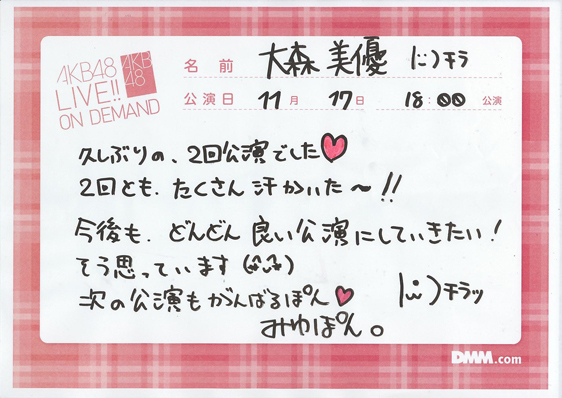 AKB48
LIVE!!
ON DEMAND
AKB
48
名前 大森美優 |ω・)チラ
公演日 11月 17日 18:00 公演
久しぶりの、2回公演でした♥
2回とも、たくさん汗かいた〜!!
今後も、どんどん良い公演にしていきたい!
そう思っています(^ω^)
次の公演もがんばるぽん♥ |ω・)チラッ
みゆぽん。
DMM.com